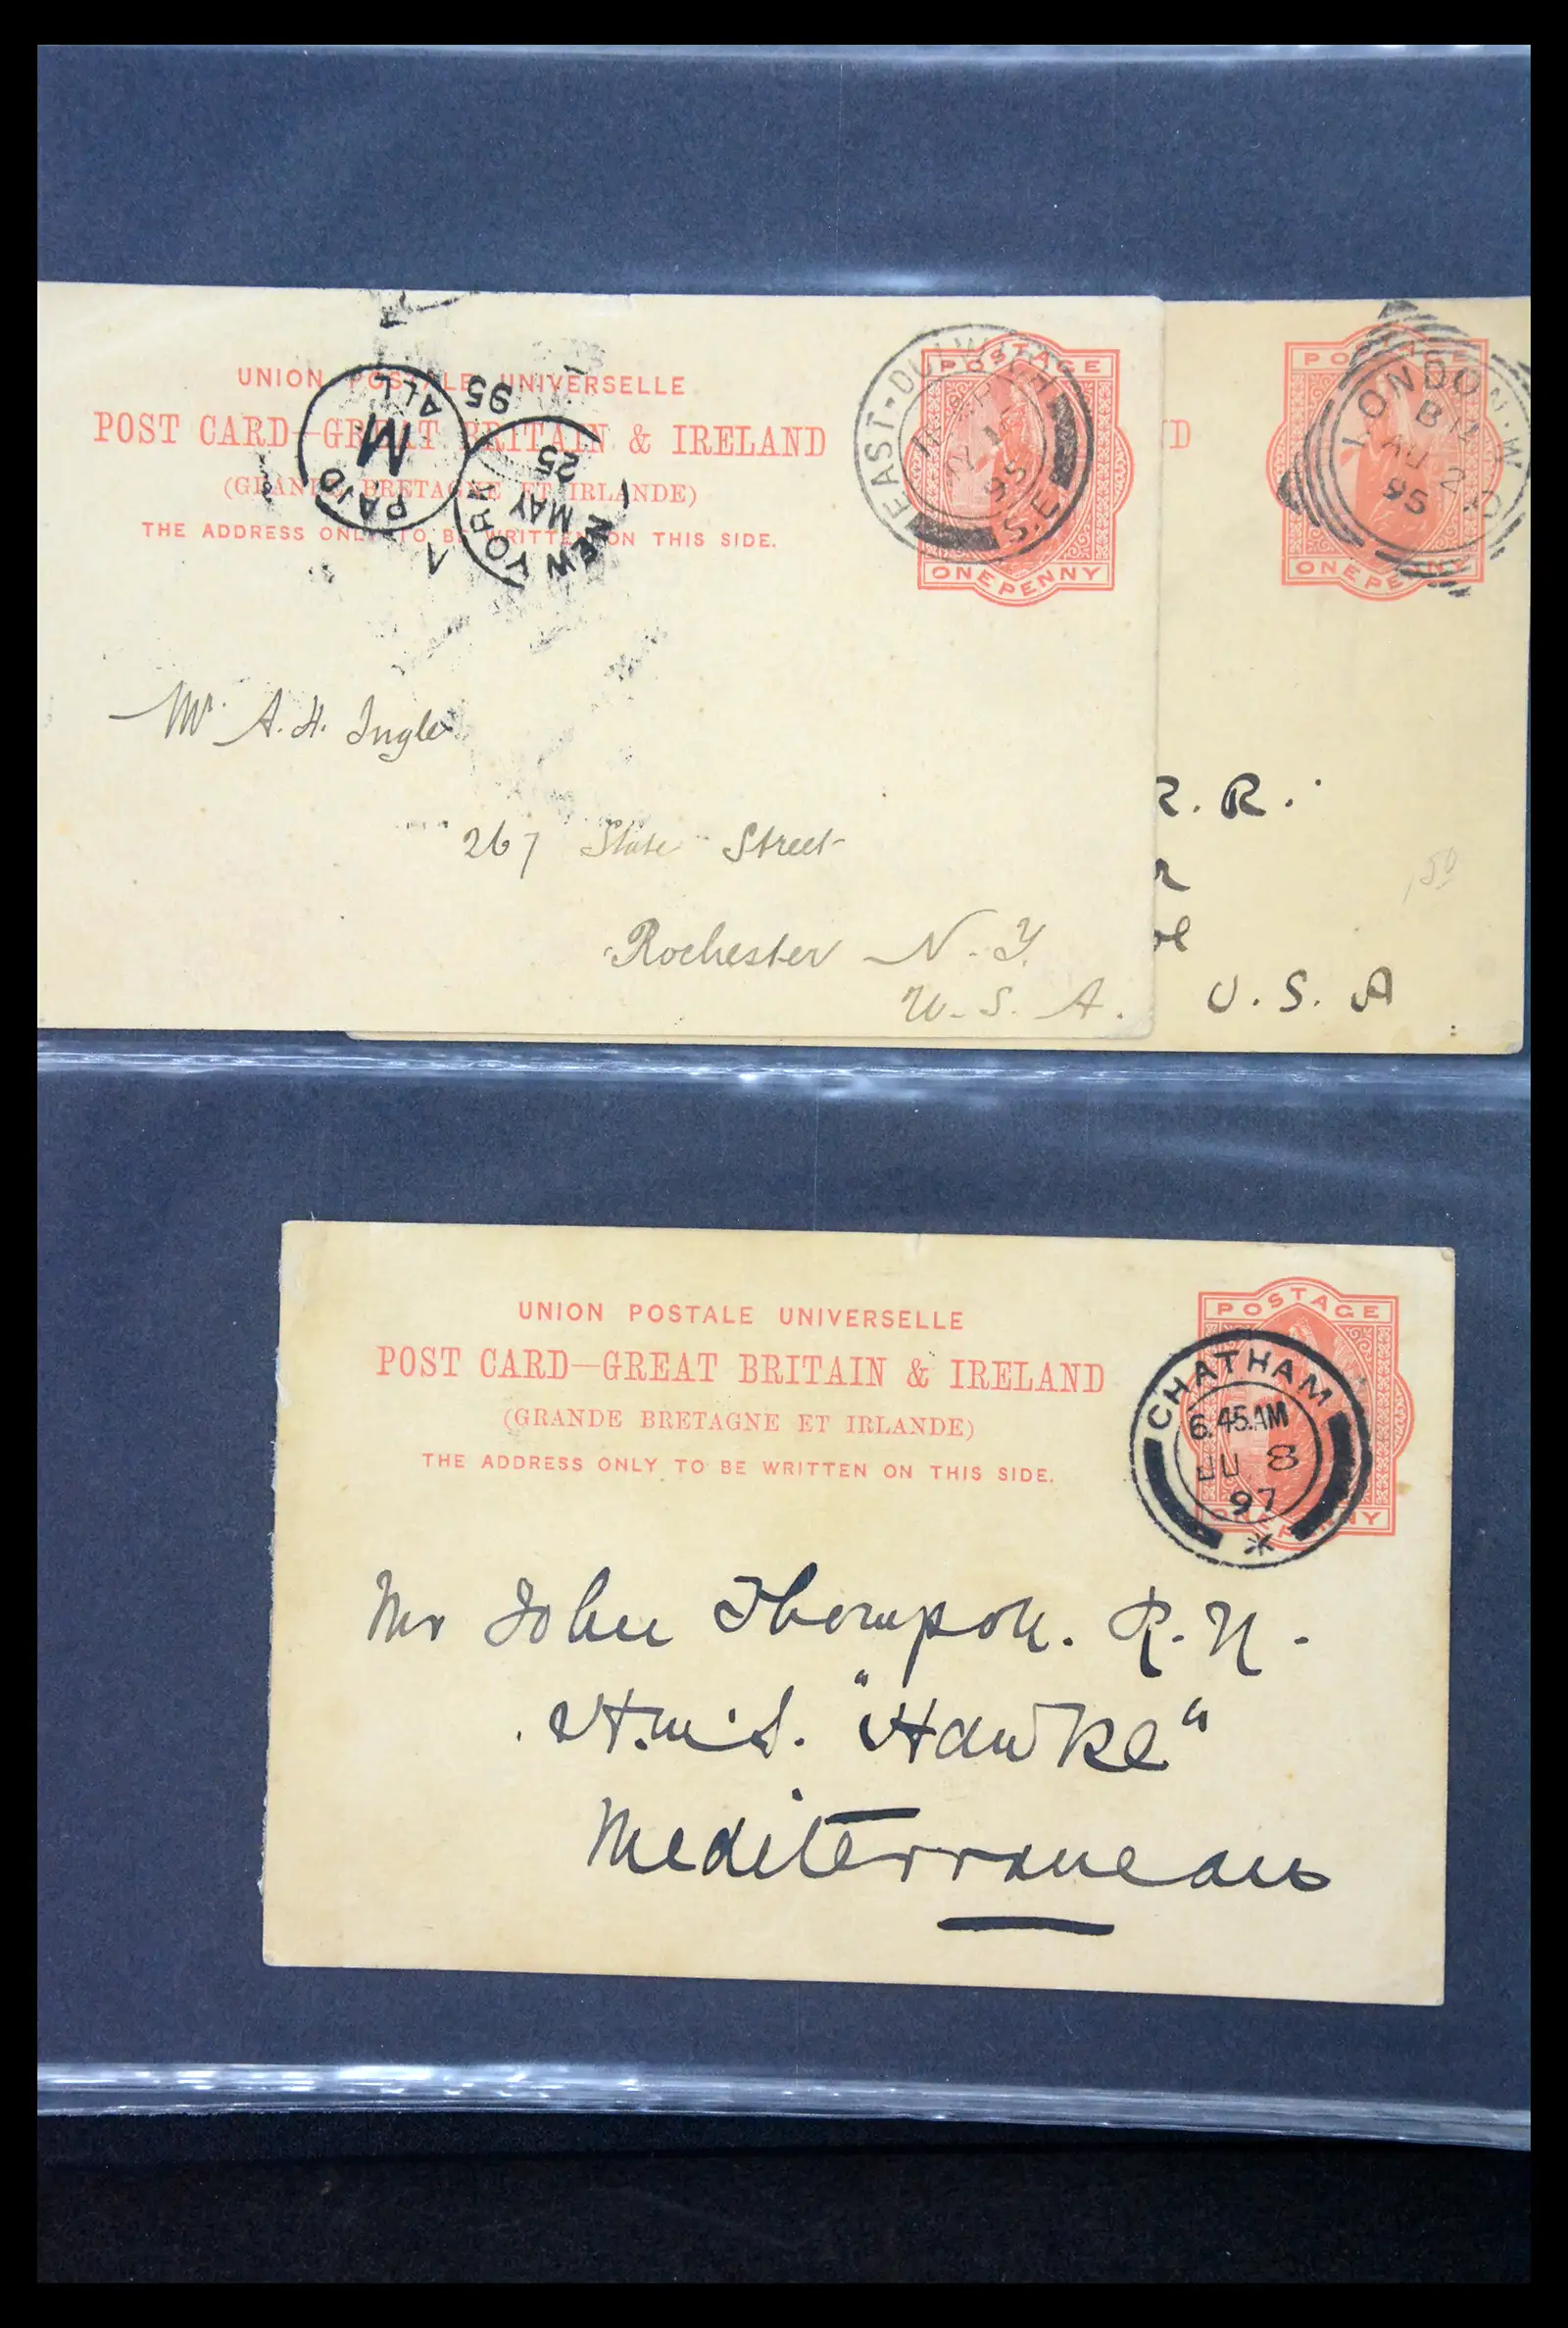 UNION POSTALE UNIVERSELLE
POST CARD—GREAT BRITAIN & IRELAND
(GRANDE BRETAGNE ET IRLANDE)
THE ADDRESS ONLY TO BE WRITTEN ON THIS SIDE.
PAID
M
ALL
NEW YORK
MAY
25
95
EAST·DULWICH
95
S.E
POSTAGE
ONE PENNY
Mr. A. H. Ingle
267 State Street
Rochester N. Y.
U. S. A.
D
POSTAGE
ONE PENNY
LONDON·N.W
B12
AU 2
95
R. R.
U. S. A
UNION POSTALE UNIVERSELLE
POST CARD—GREAT BRITAIN & IRELAND
(GRANDE BRETAGNE ET IRLANDE)
THE ADDRESS ONLY TO BE WRITTEN ON THIS SIDE.
POSTAGE
ONE PENNY
CHATHAM
6.45.AM
JU 8
97
Mr John Thompson. R. N.
H.M.S. "Hawke"
Mediterranean